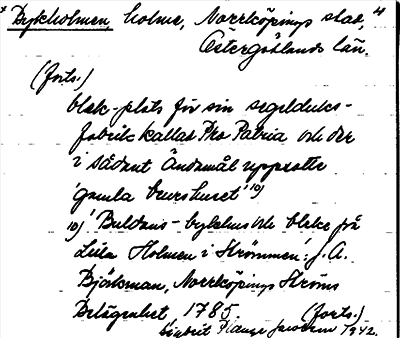 Bykholmen, holme, Norrköpings stad, 4
Östergötlands län.
(forts.)
blek-plats för sin segelduks-
fabrik kallad Pro Patria och der
i sådant ändamål upprätte
'gamla brurhuset' 10)
10) 'Buldans-bykhus och bleke på
Lilla Holmen i Strömmen': J. A.
Björkman, Norrköpings Ströms
Belägenhet 1785. (forts.)
1942.